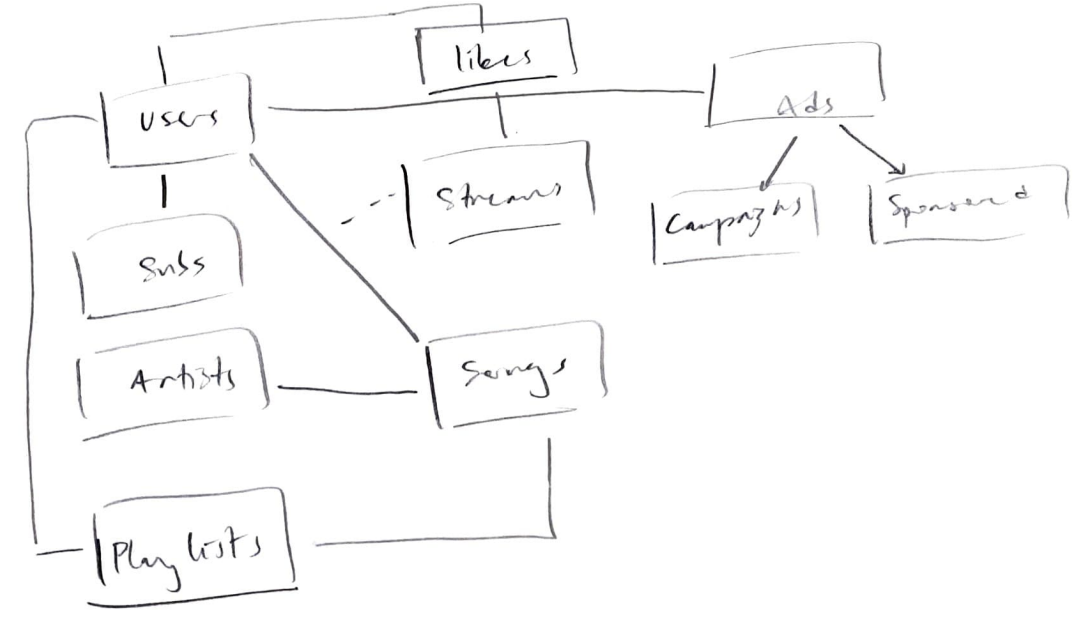 likes
Users
Ads
Streams
Campaigns
Sponsored
Subs
Artists
Songs
Playlists